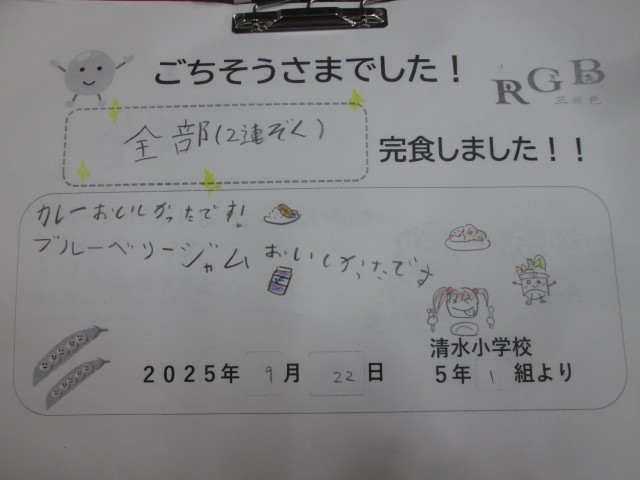 ごちそうさまでした！
RGB
三原色
全部(12連ぞく)
完食しました！！
カレーおいしかったです!
ブルーベリージャムおいしかったです
清水小学校
2025年 9月 22日 5年 1 組より